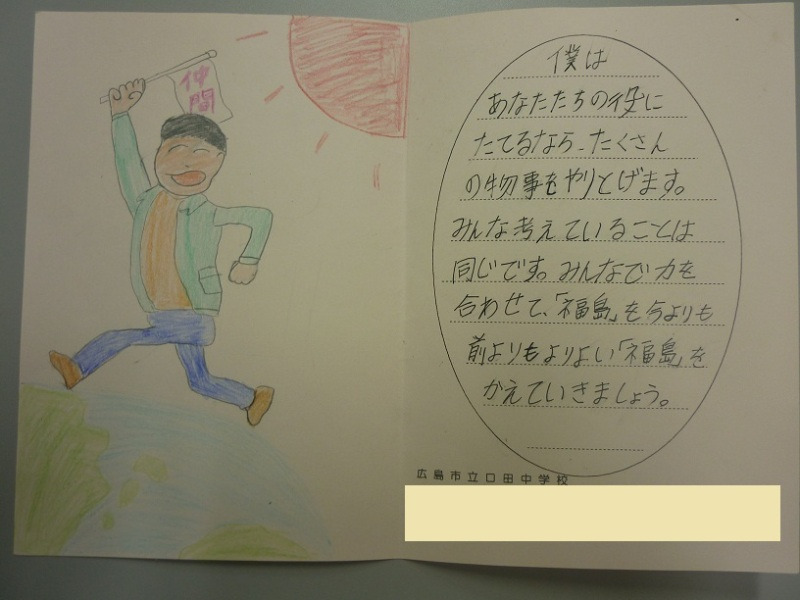 仲
間
僕は
あなたたちの役に
たてるなら、たくさん
の物事をやりとげます。
みんな考えていることは
同じです。みんなで力を
合わせて、「福島」を今よりも
前よりもよりよい「福島」を
かえていきましょう。
広島市立口田中学校